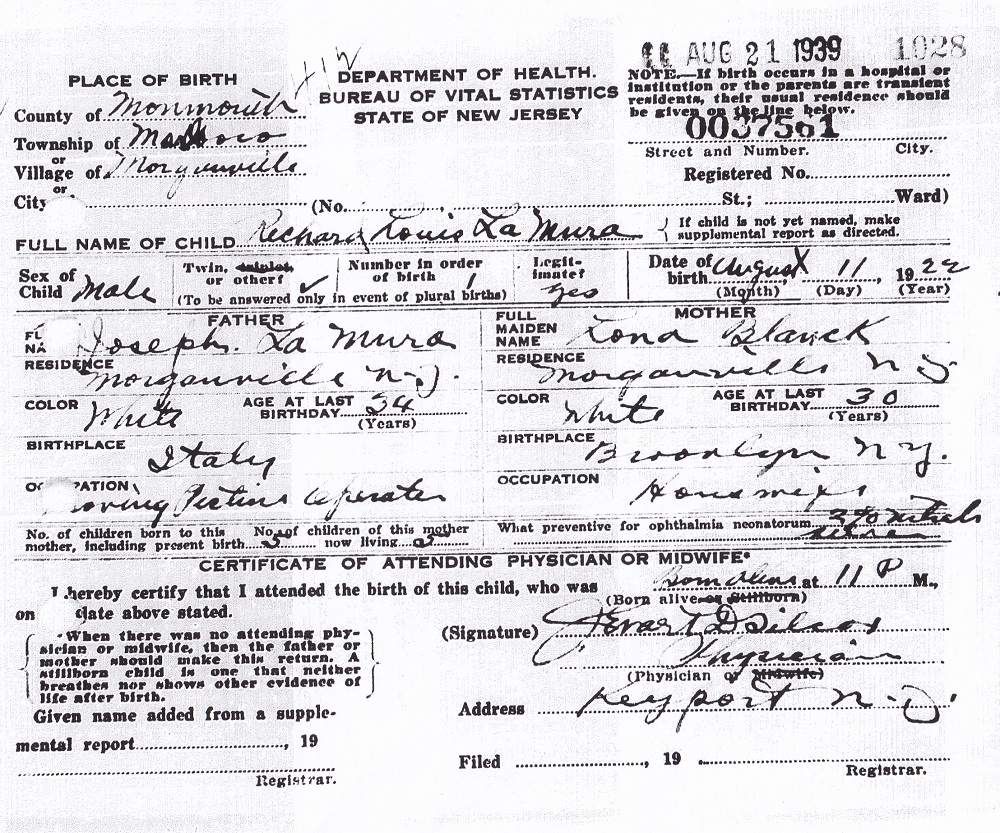 AUG 21 1939 1028
PLACE OF BIRTH
County of Monmouth
Township of Marlboro
or
Village of Morganville
or
City
DEPARTMENT OF HEALTH.
BUREAU OF VITAL STATISTICS
STATE OF NEW JERSEY
NOTE.—If birth occurs in a hospital or
institution or the parents are transient
residents, their usual residence should
be given on the line below.
0037561
Street and Number. City.
Registered No.
(No. St.; Ward)
FULL NAME OF CHILD Richard Louis La Mura
{ If child is not yet named, make
supplemental report as directed.
Sex of
Child Male
Twin, triplet,
or other?
Number in order
of birth
(To be answered only in event of plural births)
Legit-
imate?
yes
Date of
birth August 11, 1922
(Month) (Day) (Year)
FATHER
Joseph La Mura
RESIDENCE
Morganville N.J.
COLOR White
AGE AT LAST
BIRTHDAY 34
(Years)
BIRTHPLACE
Italy
OCCUPATION
Moving Picture Operator
MOTHER
FULL
MAIDEN
NAME
Lona Blanck
RESIDENCE
Morganville N J
COLOR White
AGE AT LAST
BIRTHDAY 30
(Years)
BIRTHPLACE
Brooklyn N.Y.
OCCUPATION
Housewife
No. of children born to this
mother, including present birth
No. of children of this mother
now living
What preventive for ophthalmia neonatorum 2% nitrate
silver
CERTIFICATE OF ATTENDING PHYSICIAN OR MIDWIFE*
I hereby certify that I attended the birth of this child, who was born alive at 11 P M.,
(Born alive or Stillborn)
on date above stated.
{ *When there was no attending phy-
sician or midwife, then the father or
mother should make this return. A
stillborn child is one that neither
breathes nor shows other evidence of
life after birth. }
(Signature)
Physician
(Physician or Midwife)
Address Keyport N.J.
Given name added from a supple-
mental report , 19
Registrar.
Filed , 19
Registrar.